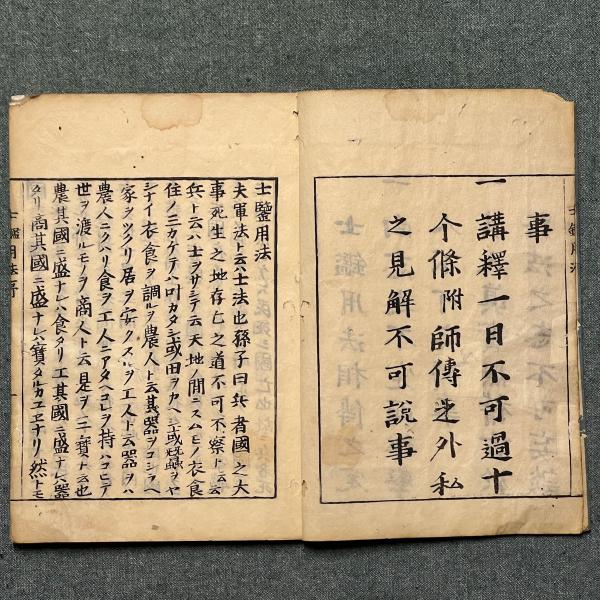 事
一講釋一日不可過十
个條附師傳之外私
之見解不可說事
士鑑用法
士鑒用法
夫軍法ト云ハ士法也孫子曰兵者國之大
事死生之地存亡之道不可不察ト云云
兵ト云ハ士ヲサシテ云天地ノ間ニスムモノ衣食
住ノ三カケテハ叶カタシ或田ヲカヘシ或蠶ヲヤ
シナイ衣食ヲ調ルヲ農人ト云其器ヲコシラヘ
家ヲツクリ居ヲ安クスルヲ工人ト云器ヲハ
農人ニクハリ食ヲ工人ニアタヘコレヲ持ハコビテ
世ヲ渡ルモノヲ商人ト云是ヲ三寶ト云也
農其國ニ盛ナレハ食タリ工其國ニ盛ナレハ器
タリ商其國ニ盛ナレハ寶タルカユヱナリ然トモ
士鑑用法序